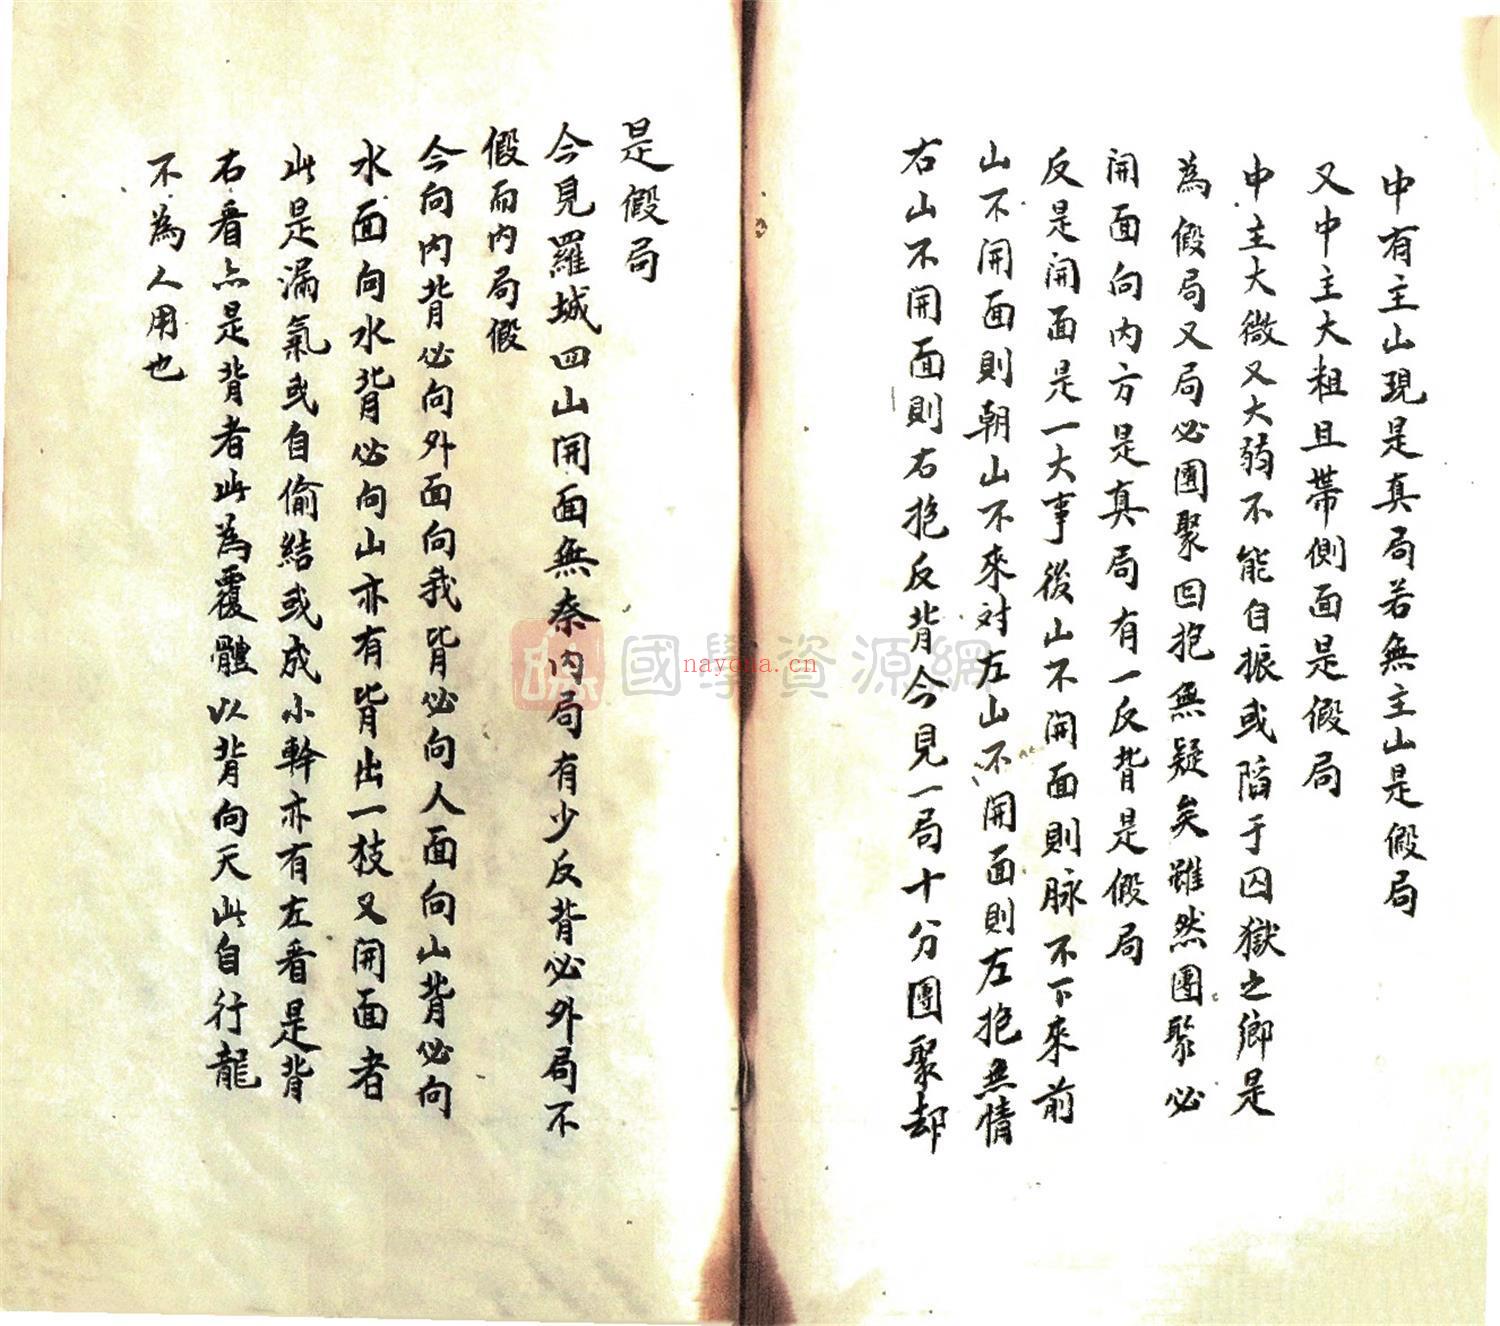 中有主山現是真局若無主山是假局
又中主大粗且帶側面是假局
中主大微又大弱不能自振或陷于囚獄之鄉是
為假局又局必團聚回抱無疑矣雖然團聚必
開面向內方是真局有一反背是假局
反是開面是一大事後山不開面則脉不下來前
山不開面則朝山不來対左山不開面則左抱無情
右山不開面則右抱反背今見一局十分團聚却
是假局
今見羅城四山開面無奈內局有少反背必外局不
假而內局假
今向內背必向外面向我背必向人面向山背必向
水面向水背必向山亦有背出一枝又開面者
此是漏氣或自偷結或成小幹亦有左看是背
右看亦是背者此為覆體以背向天此自行龍
不為人用也
國學資源網
nayona.cn